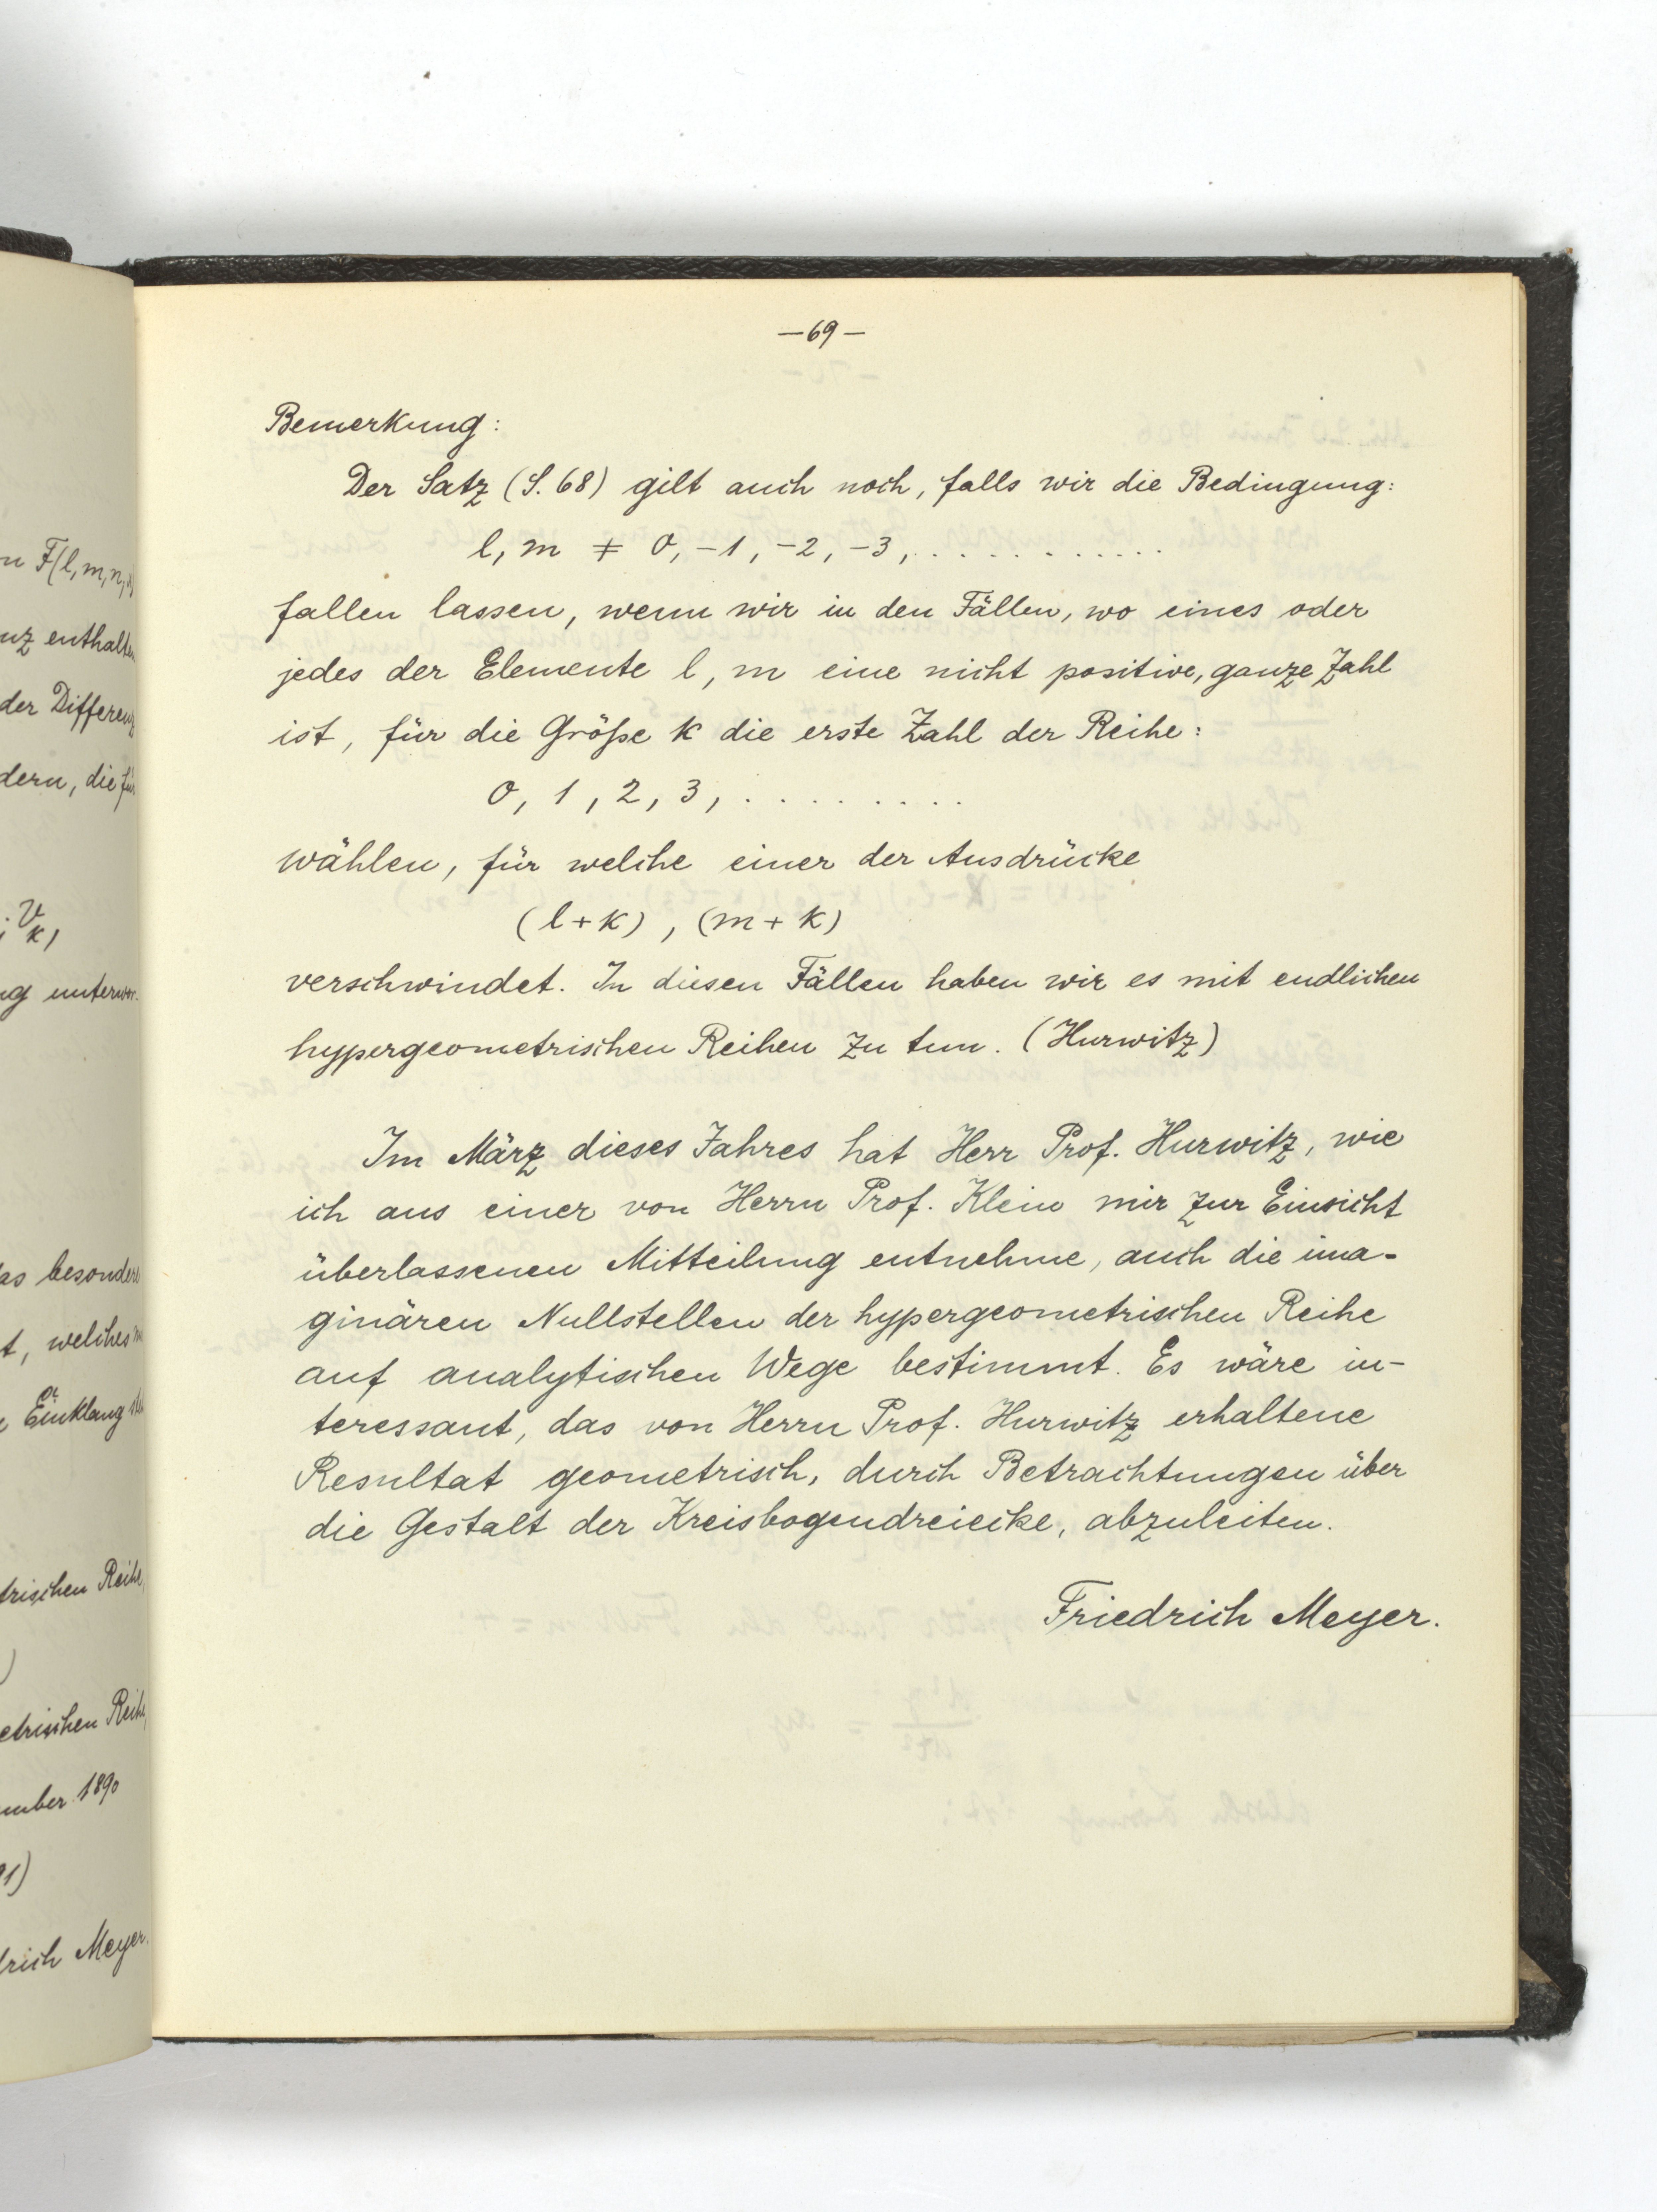 n F(l, m, n,
nz enthalten
der Differenz
dern, die für
; V_k,
ng unterwor-
das besondere
t, welches
Einklang
trischen Reihe,
)
etrischen Reihe,
ember 1890
91)
drich Meyer.
— 69 —
Bemerkung:
Der Satz (S. 68) gilt auch noch, falls wir die Bedingung:
l, m ≠ 0, -1, -2, -3, . . . . . . . . . . . .
fallen lassen, wenn wir in den Fällen, wo eines oder
jedes der Elemente l, m eine nicht positive, ganze Zahl
ist, für die Größe k die erste Zahl der Reihe:
0, 1, 2, 3, . . . . . . . . .
wählen, für welche einer der Ausdrücke
(l + k), (m + k)
verschwindet. In diesen Fällen haben wir es mit endlichen
hypergeometrischen Reihen zu tun. (Hurwitz)
Im März dieses Jahres hat Herr Prof. Hurwitz, wie
ich aus einer von Herrn Prof. Klein mir zur Einsicht
überlassenen Mitteilung entnehme, auch die ima-
ginären Nullstellen der hypergeometrischen Reihe
auf analytischen Wege bestimmt. Es wäre in-
teressant, das von Herrn Prof. Hurwitz erhaltene
Resultat geometrisch, durch Betrachtungen über
die Gestalt der Kreisbogendreiecke, abzuleiten.
Friedrich Meyer.